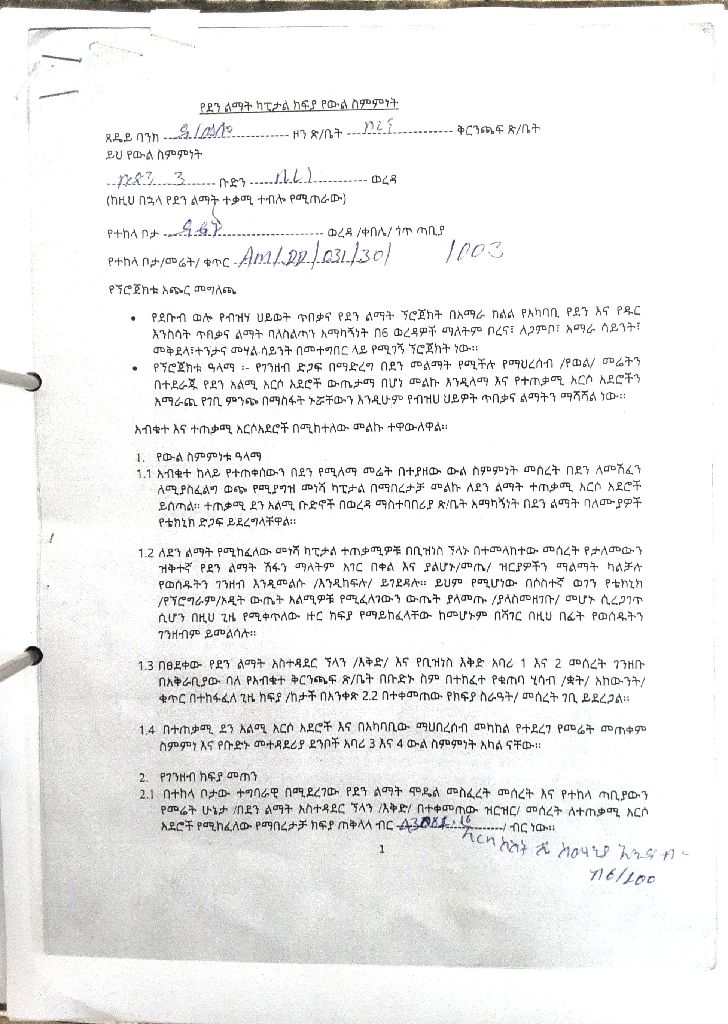 የደን ልማት ካፒታል ክፍያ የውል ስምምነት
ጸደይ ባንክ ------------------ ዞን ጽ/ቤት ------------------ ቅርንጫፍ ጽ/ቤት
ይህ የውል ስምምነት
3 ቡድን ------------------ ወረዳ
(ከዚህ በኋላ የደን ልማት ተቃሚ ተብሎ የሚጠራው)
የተከላ ቦታ ------------------ ወረዳ /ቀበሌ/ ጎጥ ጣቢያ
የተከላ ቦታ/መሬት/ ቁጥር AM/DD/031/30/ /003
የፕሮጀክቱ አጭር መግለጫ
• የደቡብ ወሎ የብዝሃ ህይወት ጥበቃና የደን ልማት ፕሮጀክት በአማራ ክልል የአካባቢ የደን እና የዱር
እንስሳት ጥበቃና ልማት ባለስልጣን አማካኝነት በ6 ወረዳዎች ማለትም ቦረና፣ ለጋምቦ፣ አማራ ሳይንት፣
መቅደላ፣ተንታና መሃል ሳይንት በመተግበር ላይ የሚገኝ ፕሮጀክት ነው።
• የፕሮጀክቱ ዓላማ ፡- የገንዘብ ድጋፍ በማድረግ በደን መልማት የሚችሉ የማህረሰብ /የወል/ መሬትን
በተደራጁ የደን አልሚ አርሶ አደሮች ውጤታማ በሆነ መልኩ እንዲለማ እና የተጠቃሚ አርሶ አደሮችን
አማራጪ የገቢ ምንጭ በማስፋት ኑሯቸውን እንዲሁም የብዝሀ ህይዎት ጥበቃና ልማትን ማሻሻል ነው።
አብቁተ እና ተጠቃሚ አርሶአደሮች በሚከተለው መልኩ ተዋውለዋል።
1. የውል ስምምነቱ ዓላማ
1.1 አብቁተ ከላይ የተጠቀሰውን በደን የሚለማ መሬት በተያዘው ውል ስምምነት መሰረት በደን ለመሸፈን
ለሚያስፈልግ ወጭ የሚያግዝ መነሻ ካፒታል በማበረታቻ መልኩ ለደን ልማት ተጠቃሚ አርሶ አደሮች
ይሰጣል። ተጠቃሚ ደን አልሚ ቡድኖች በወረዳ ማስተባበሪያ ጽ/ቤት አማካኝነት በደን ልማት ባለሙያዎች
የቴክኒክ ድጋፍ ይደረግላቸዋል።
1.2 ለደን ልማት የሚከፈለው መነሻ ካፒታል ተጠቃሚዎቹ በቢዝነስ ፕላኑ በተመላከተው መሰረት የታለመውን
ዝቅተኛ የደን ልማት ሽፋን ማለትም አገር በቀል እና ያልሆኑ/መጤ/ ዝርያዎችን ማልማት ካልቻሉ
የወሰዱትን ገንዘብ እንዲመልሱ /እንዲከፍሉ/ ይገደዳሉ። ይህም የሚሆነው በሶስተኛ ወገን የቴክኒክ
/የፕሮግራም/ኦዲት ውጤት አልሚዎቹ የሚፈለገውን ውጤት ያላመጡ /ያላስመዘገቡ/ መሆኑ ሲረጋገጥ
ሲሆን በዚህ ጊዜ የሚቀጥለው ዙር ክፍያ የማይከፈላቸው ከመሆኑም በሻገር በዚህ በፊት የወሰዱትን
ገንዘብም ይመልሳሉ።
1.3 በፀደቀው የደን ልማት አስተዳደር ፕላን /እቅድ/ እና የቢዝነስ እቅድ አባሪ 1 እና 2 መሰረት ገንዘቡ
በአቅራቢያው ባለ የአብቁተ ቅርንጫፍ ጽ/ቤት በቡድኑ ስም በተከፈተ የቁጠባ ሂሳብ /ቋት/ አካውንት/
ቁጥር በተከፋፈለ ጊዜ ክፍያ /ከታች በአንቀጽ 2.2 በተቀመጠው የክፍያ ስራዓት/ መሰረት ገቢ ይደረጋል።
1.4 በተጠቃሚ ደን አልሚ አርሶ አደሮች እና በአካባቢው ማህበረሰብ መካከል የተደረገ የመሬት መጠቀም
ስምምነ እና የቡድኑ መተዳደሪያ ደንቦች አባሪ 3 እና 4 ውል ስምምነት አካል ናቸው።
2. የገንዘብ ክፍያ መጠን
2.1 በተከላ ቦታው ተግባራዊ በሚደረገው የደን ልማት ሞዴል መስፈረት መሰረት እና የተከላ ጣቢያውን
የመሬት ሁኔታ /በደን ልማት አስተዳደር ፕላን /እቅድ/ በተቀመጠው ዝርዝር/ መሰረት ለተጠቃሚ አርሶ
አደሮች የሚከፈለው የማበረታቻ ክፍያ ጠቅላላ ብር ------------------/ ብር ነው።
16/100
1